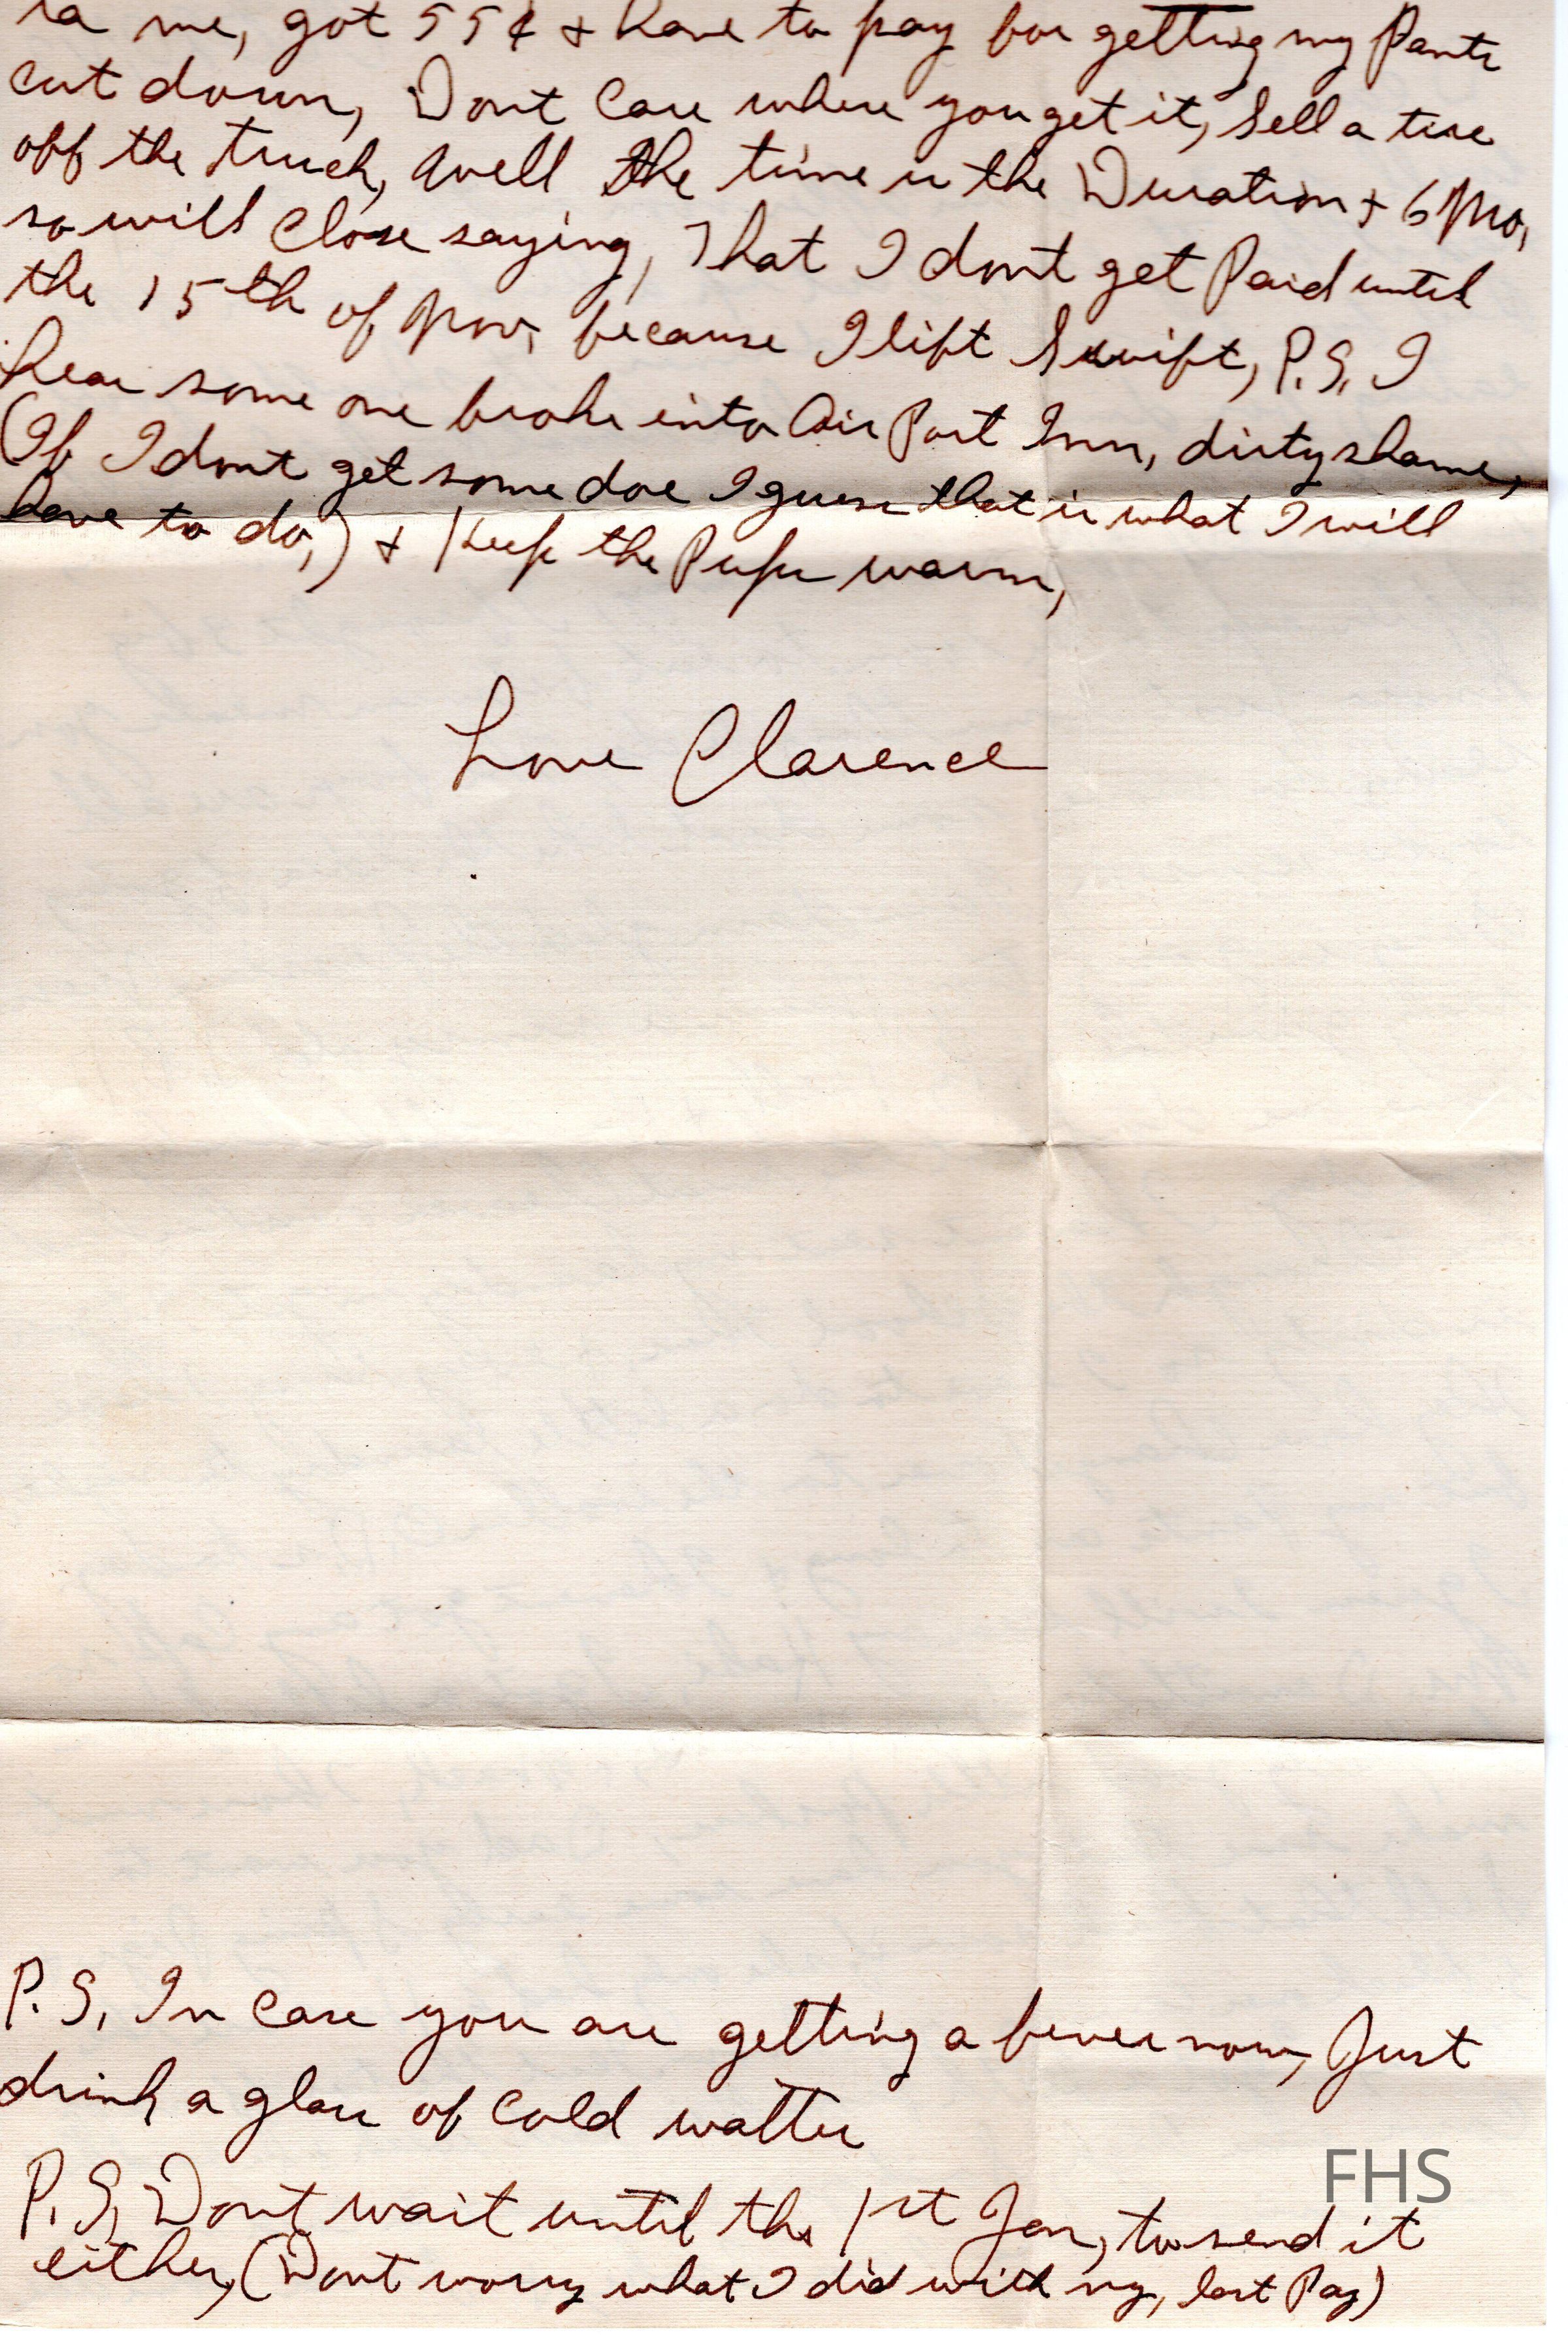 me, got 55¢ & have to pay for getting my Pants
cut down, Dont Care where you get it, Sell a tire
off the truck, Well The time is the Duration + 6 Mo,
so will Close saying, That I dont get Paid until
the 15th of Nov, because I lift Swift, P.S, I
hear some one broke into Air Port Inn, dirty shame,
(If I dont get some doe I guess that is what I will
have to do,) & Keep the Pups warm,
Love Clarence
P.S, In Case you are getting a fever now, Just
drink a glass of Cold watter
P.S, Dont wait until the 1st Jan, to send it
either, (Dont worry what I did with my, last Pay)
FHS